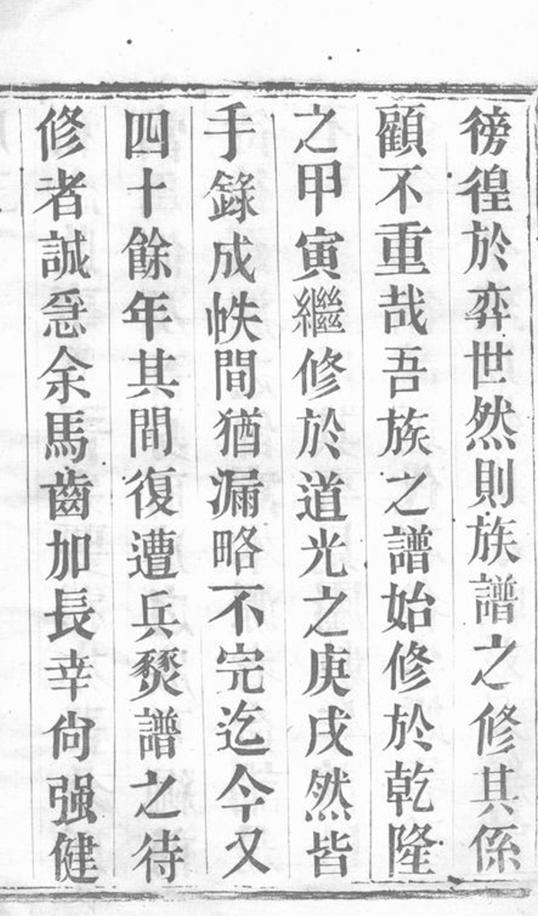 徬徨於弈世然則族譜之修其係
顧不重哉吾族之譜始修於乾隆
之甲寅繼修於道光之庚戌然皆
手錄成帙間猶漏略不完迄今又
四十餘年其間復遭兵燹譜之待
修者誠急余馬齒加長幸尙强健